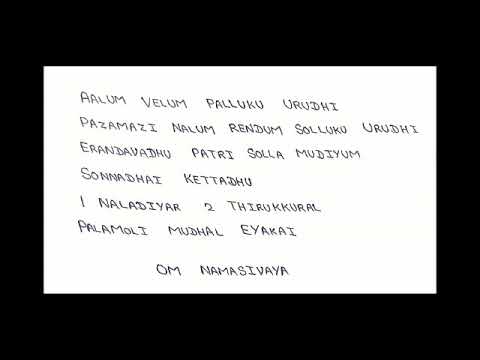 AALUM VELUM PALLUKU URUDHI
PAZAMAZI NALUM RENDUM SOLLUKU URUDHI
ERANDAVADHU PATRI SOLLA MUDIYUM
SONNADHAI KETTADHU
1 NALADIYAR 2 THIRUKKURAL
PALAMOLI MUDHAL EYAKAI
OM NAMASIVAYA